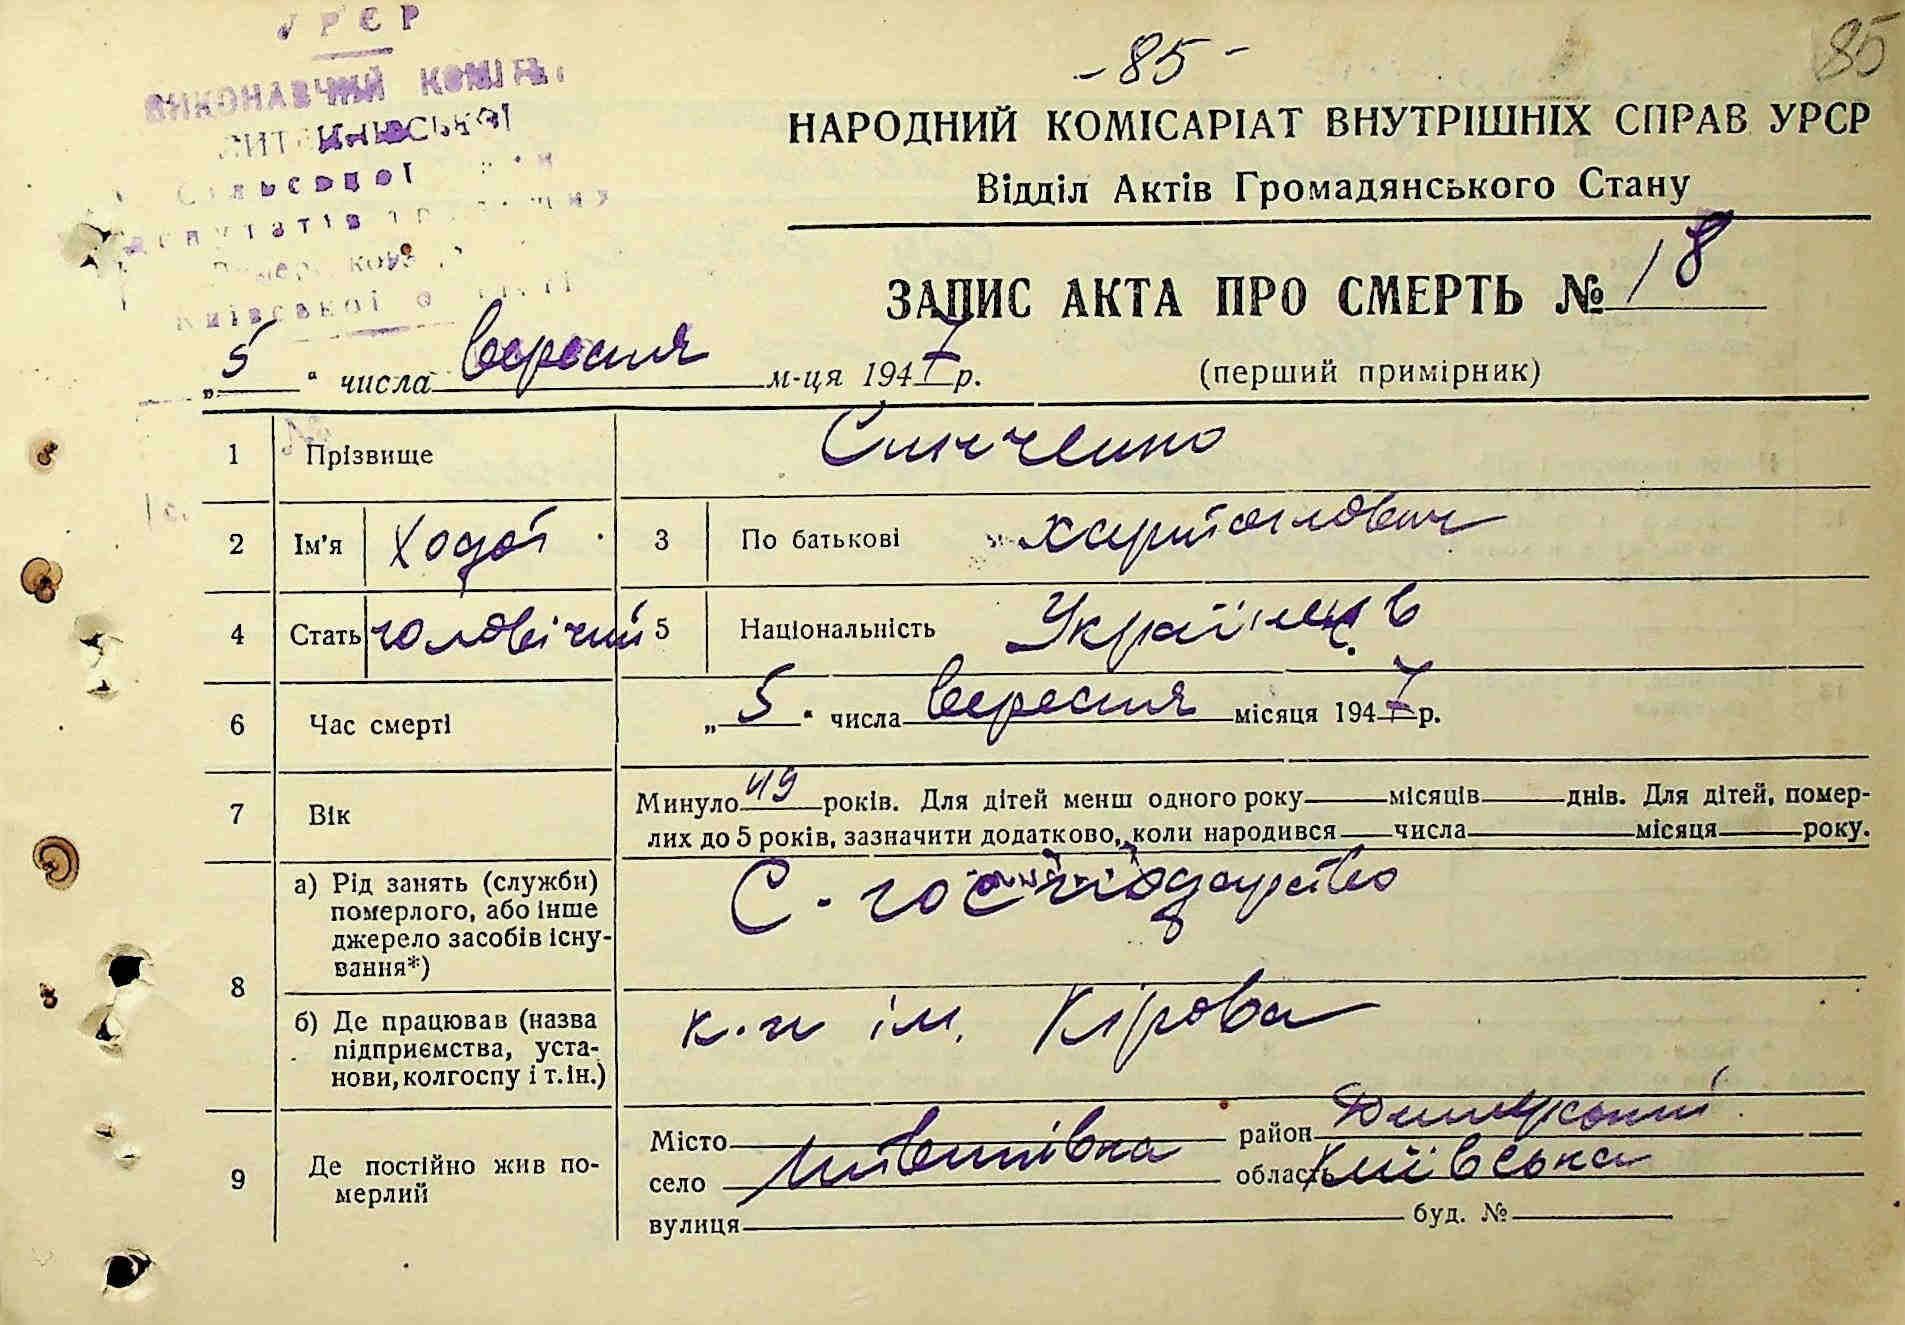 УРСР
ВИКОНАВЧИЙ КОМІТЕТ
Київської
- 85 -
85
НАРОДНИЙ КОМІСАРІАТ ВНУТРІШНІХ СПРАВ УРСР
Відділ Актів Громадянського Стану
ЗАПИС АКТА ПРО СМЕРТЬ № 18
„5" числа вересня м-ця 1947 р.
(перший примірник)
1 Прізвище Синченко
2 Ім'я Ходот 3 По батькові
4 Стать чоловічий 5 Національність Українців
6 Час смерті „5" числа вересня місяця 1947 р.
7 Вік Минуло 49 років. Для дітей менш одного року місяців днів. Для дітей, помер-
лих до 5 років, зазначити додатково, коли народився числа місяця року.
8 а) Рід занять (служби) померлого, або інше джерело засобів існу-вання*) С. господарство
б) Де працював (назва підприємства, уста-нови, колгоспу і т. ін.) к-п ім. Кірова
9 Де постійно жив по-мерлий
Місто район Димерський
село Литвинівка область Київська
вулиця буд. №